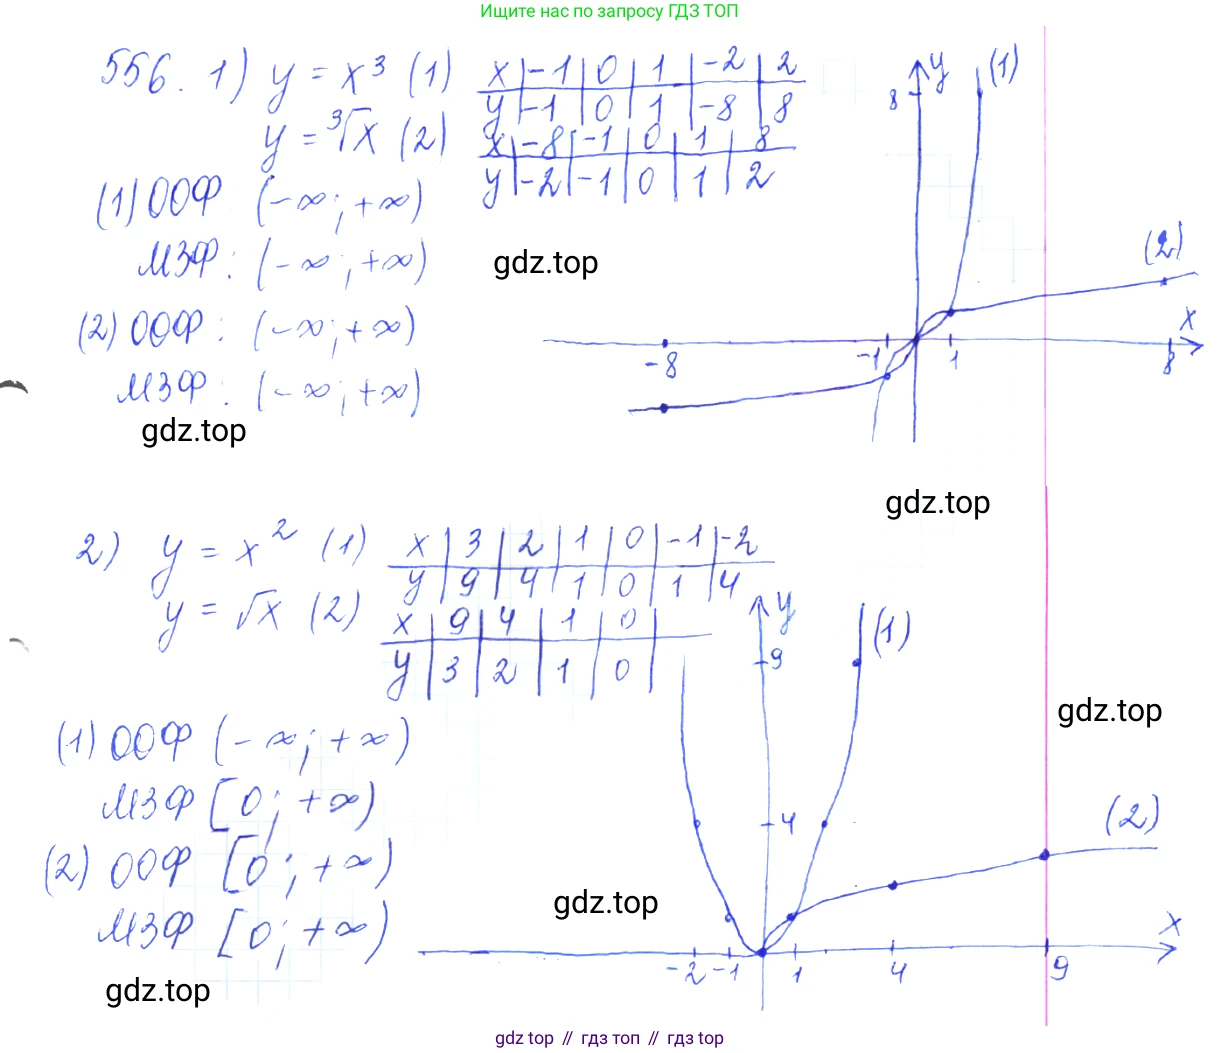 Ищите нас по запросу ГДЗ ТОП
556. 1) y = x³ (1)
x | -1 | 0 | 1 | -2 | 2
y | -1 | 0 | 1 | -8 | 8
y = ³√x (2)
x | -8 | -1 | 0 | 1 | 8
y | -2 | -1 | 0 | 1 | 2
(1) ООФ (-∞; +∞)
МЗФ: (-∞; +∞)
(2) ООФ: (-∞; +∞)
МЗФ: (-∞; +∞)
y
8
(1)
(2)
x
-8
-1
1
8
gdz.top
gdz.top
gdz.top
2) y = x² (1)
x | 3 | 2 | 1 | 0 | -1 | -2
y | 9 | 4 | 1 | 0 | 1 | 4
y = √x (2)
x | 9 | 4 | 1 | 0
y | 3 | 2 | 1 | 0
(1) ООФ (-∞; +∞)
МЗФ [0; +∞)
(2) ООФ [0; +∞)
МЗФ [0; +∞)
y
9
(1)
4
(2)
x
-2
-1
1
4
9
gdz.top
gdz.top
gdz.top
gdz top // гдз топ // гдз top